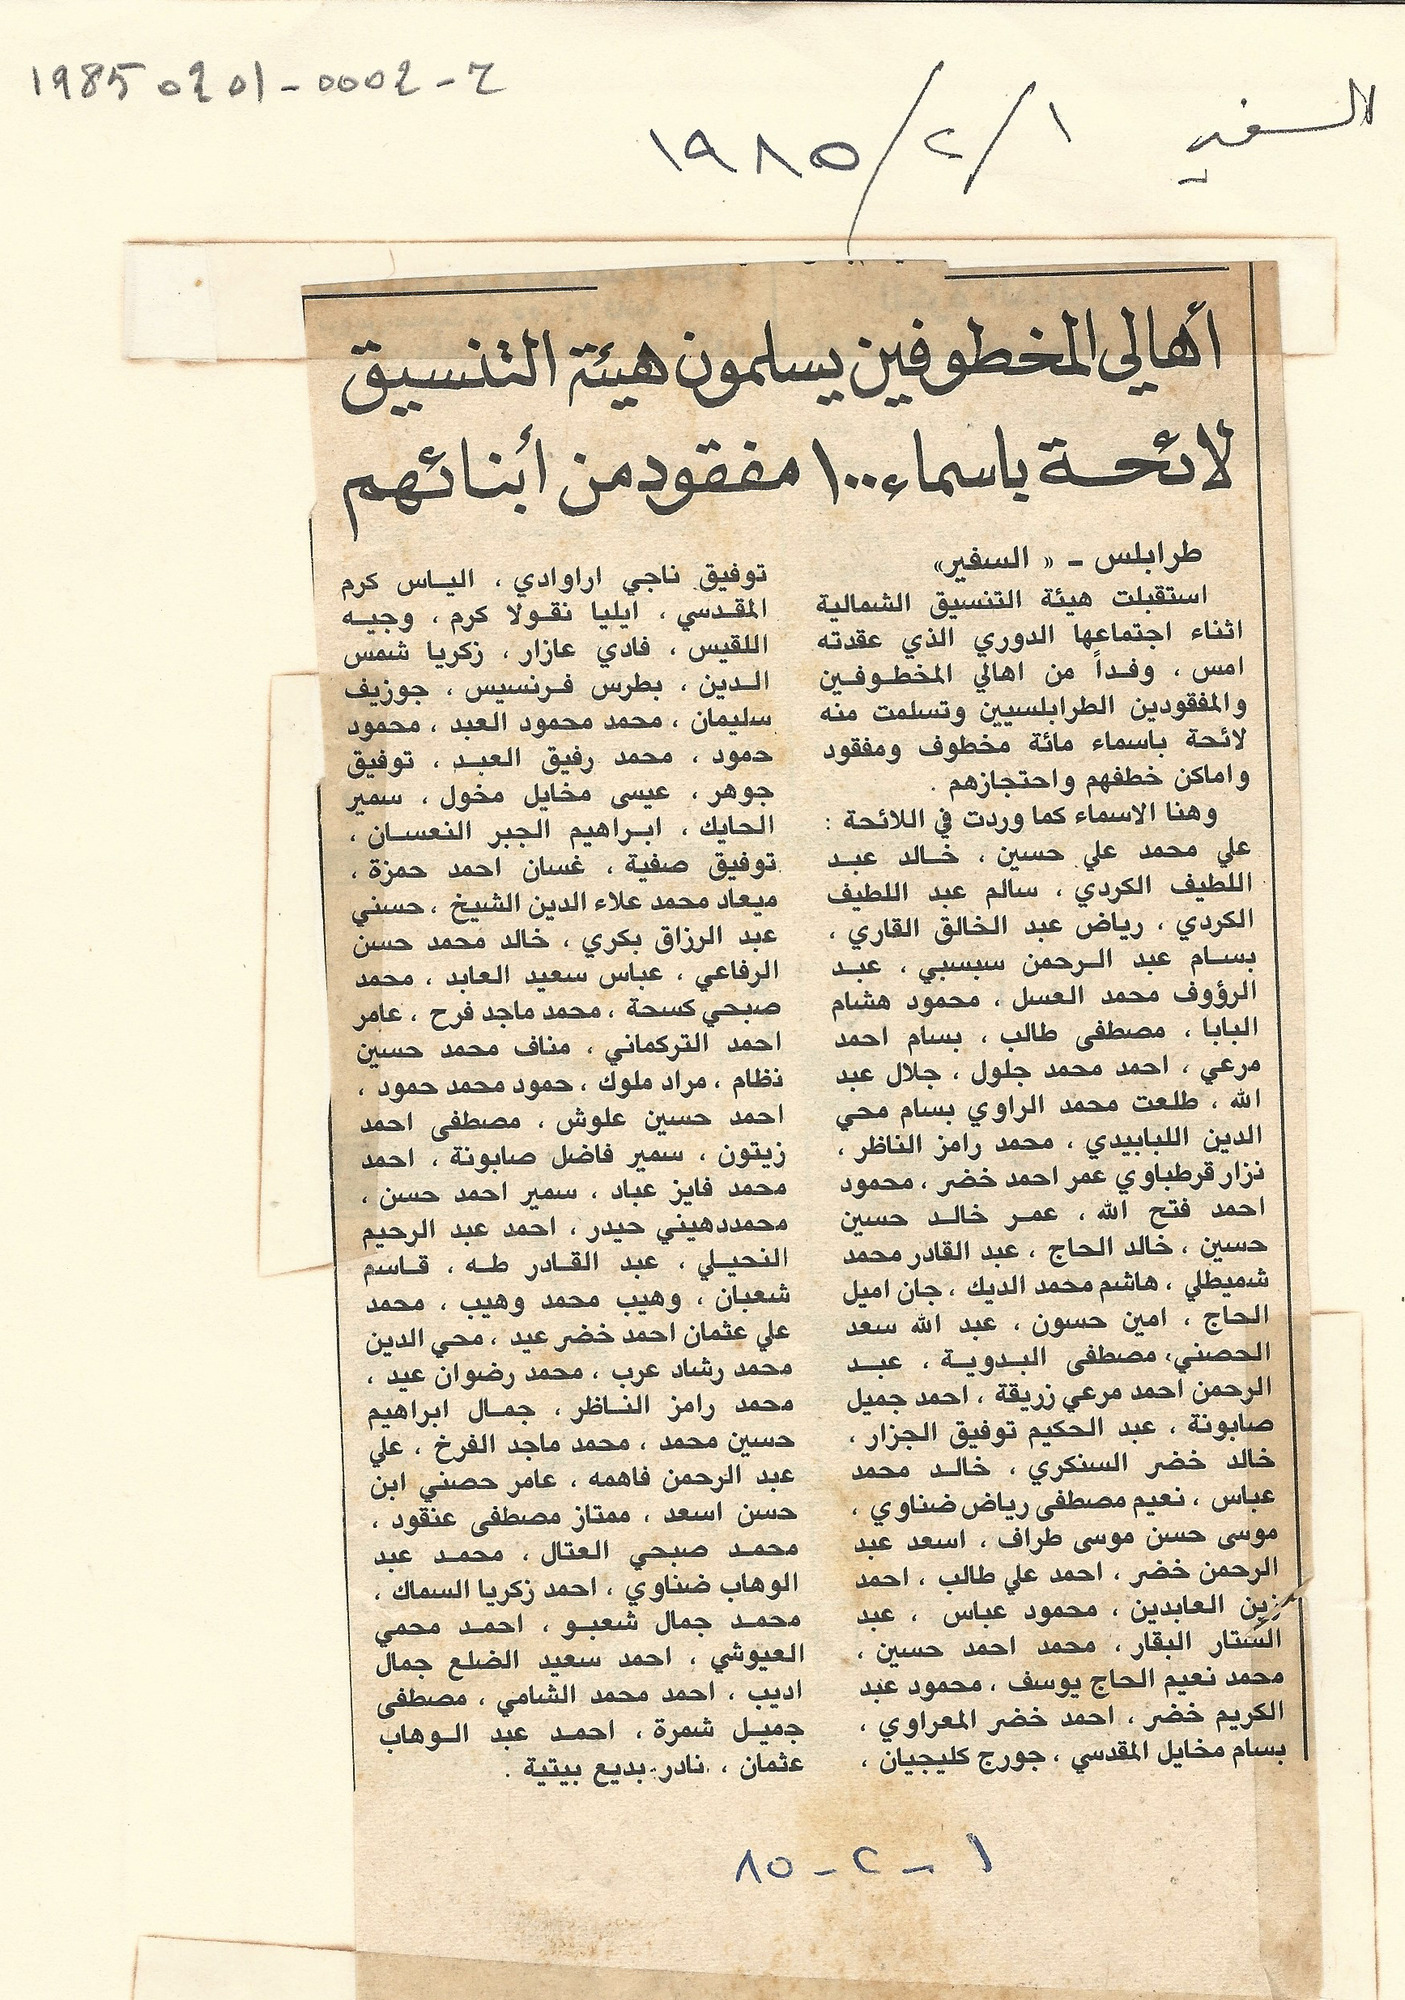 19850201-0002-2
السفير ١/٢/١٩٨٥
أهالي المخطوفين يسلمون هيئة التنسيق
لائحة باسماء ١٠٠ مفقود من أبنائهم
طرابلس ـ « السفير»
استقبلت هيئة التنسيق الشمالية
اثناء اجتماعها الدوري الذي عقدته
امس ، وفداً من اهالي المخطوفين
والمفقودين الطرابلسيين وتسلمت منه
لائحة باسماء مائة مخطوف ومفقود
واماكن خطفهم واحتجازهم .
وهنا الاسماء كما وردت في اللائحة :
علي محمد علي حسين ، خالد عبد
اللطيف الكردي ، سالم عبد اللطيف
الكردي ، رياض عبد الخالق القاري ،
بسام عبد الرحمن سبسبي ، عبد
الرؤوف محمد العسل ، محمود هشام
البابا ، مصطفى طالب ، بسام احمد
مرعي ، احمد محمد جلول ، جلال عبد
الله ، طلعت محمد الراوي بسام محي
الدين اللبابيدي ، محمد رامز الناظر ،
نزار قرطباوي عمر احمد خضر ، محمود
احمد فتح الله ، عمر خالد حسين
حسين ، خالد الحاج ، عبد القادر محمد
شميطلي ، هاشم محمد الديك ، جان اميل
الحاج ، امين حسون ، عبد الله سعد
الحصني، مصطفى البدوية ، عبد
الرحمن احمد مرعي زريقة ، احمد جميل
صابونة ، عبد الحكيم توفيق الجزار ،
خالد خضر السنكري ، خالد محمد
عباس ، نعيم مصطفى رياض ضناوي ،
موسى حسن موسى طراف ، اسعد عبد
الرحمن خضر ، احمد علي طالب ، احمد
زين العابدين ، محمود عباس ، عبد
الستار البقار ، محمد احمد حسين ،
محمد نعيم الحاج يوسف ، محمود عبد
الكريم خضر ، احمد خضر المعراوي ،
بسام مخايل المقدسي ، جورج كليجيان ،
توفيق ناجي اراوادي ، الياس كرم
المقدسي ، ايليا نقولا كرم ، وجيه
اللقيس ، فادي عازار ، زكريا شمس
الدين ، بطرس فرنسيس ، جوزيف
سليمان ، محمد محمود العبد ، محمود
حمود ، محمد رفيق العبد ، توفيق
جوهر ، عيسى مخايل مخول ، سمير
الحايك ، ابراهيم الجبر النعسان ،
توفيق صفية ، غسان احمد حمزة ،
ميعاد محمد علاء الدين الشيخ ، حسني
عبد الرزاق بكري ، خالد محمد حسن
الرفاعي ، عباس سعيد العابد ، محمد
صبحي كسحة ، محمد ماجد فرح ، عامر
احمد التركماني ، مناف محمد حسين
نظام ، مراد ملوك ، حمود محمد حمود ،
احمد حسين علوش ، مصطفى احمد
زيتون ، سمير فاضل صابونة ، احمد
محمد فايز عباد ، سمير احمد حسن ،
محمددهيني حيدر ، احمد عبد الرحيم
النحيلي ، عبد القادر طه ، قاسم
شعبان ، وهيب محمد وهيب ، محمد
علي عثمان احمد خضر عيد ، محي الدين
محمد رشاد عرب ، محمد رضوان عيد ،
محمد رامز الناظر ، جمال ابراهيم
حسين محمد ، محمد ماجد الفرخ ، علي
عبد الرحمن فاهمه ، عامر حصني ابن
حسن اسعد ، ممتاز مصطفى عنقود ،
محمد صبحي العتال ، محمد عبد
الوهاب ضناوي ، احمد زكريا السماك ،
محمد جمال شعبو ، احمد محمي
العيوشي ، احمد سعيد الضلع جمال
اديب ، احمد محمد الشامي ، مصطفى
جميل شمرة ، احمد عبد الوهاب
عثمان ، نادر بديع بيتية .
١ - ٢ - ٨٥